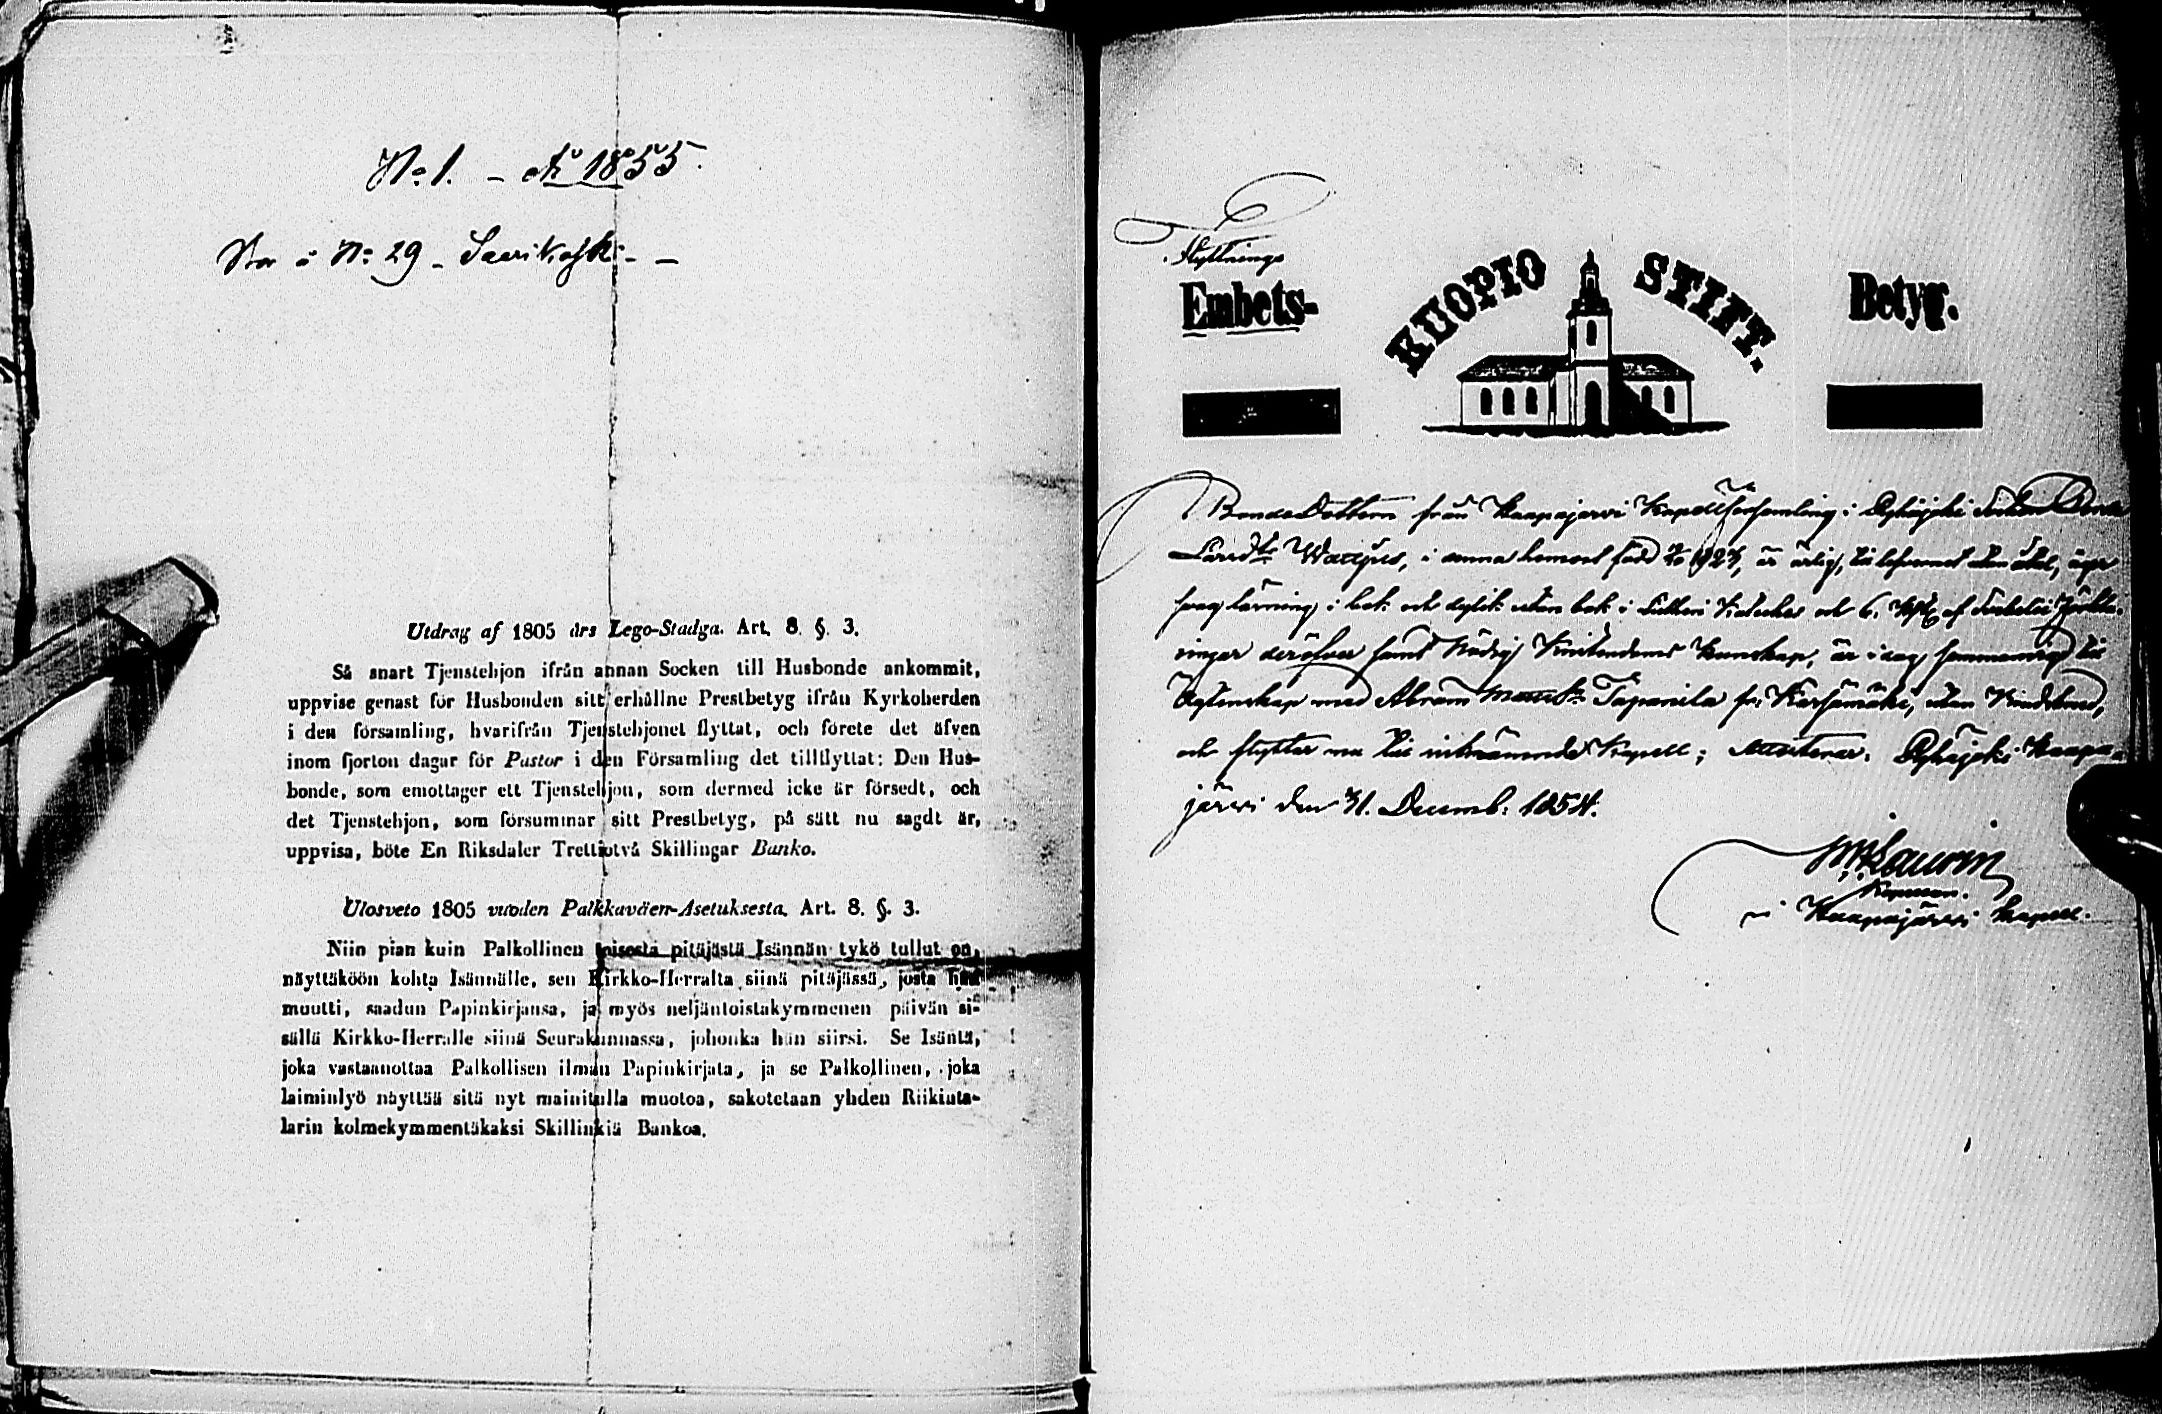 No 1. - År 1855.
Bor å No 29 - Saarikoski - -
Utdrag af 1805 års Lego-Stadga. Art. 8. §. 3.
Så snart Tjenstehjon ifrån annan Socken till Husbonde ankommit,
uppvise genast för Husbonden sitt erhållne Prestbetyg ifrån Kyrkoherden
i den församling, hvarifrån Tjenstehjonet flyttat, och förete det äfven
inom fjorton dagar för Pastor i den Församling det tillflyttat: Den Hus-
bonde, som emottager ett Tjenstehjon, som dermed icke är försedt, och
det Tjenstehjon, som försummar sitt Prestbetyg, på sätt nu sagdt är,
uppvisa, böte En Riksdaler Trettiotvå Skillingar Banko.
Ulosveto 1805 vuoden Palkkaväen-Asetuksesta. Art. 8. §. 3.
Niin pian kuin Palkollinen toisesta pitäjästä Isännän tykö tullut on,
näyttäköön kohta Isännälle, sen Kirkko-Herralta siinä pitäjässä, josta hän
muutti, saadun Papinkirjansa, ja myös neljäntoistakymmenen päivän si-
sällä Kirkko-Herralle siinä Seurakunnassa, johonka hän siirsi. Se Isäntä,
joka vastaanottaa Palkollisen ilman Papinkirjata, ja se Palkollinen, joka
laiminlyö näyttää sitä nyt mainitulla muotoa, sakotetaan yhden Riikinta-
larin kolmekymmentäkaksi Skillinkiä Bankoa.
Flyttnings
Embets-
KUOPIO STIFT.
Betyg.
BondeDottern från Haapajärvi Kapellförsamling i Pyhäjoki Socken
i samma hemort född 1827, är ärlig, till lefvernet utan åtal, äger
svag läsning i bok och dylik utan bok i Lutheri Kateches och
deröfver samt Nödig Kristendoms Kunskap, är i dag sammanvigd till
Ägtenskap med Abram Matts. Tapanila fr. Kärsämäki, utan Hindersmål,
och flyttar nu till nämnde Kapell; Attesterar. Pyhäjoki Haapa-
järvi den 31. Decemb: 1854.
i Haapajärvi Kapell.